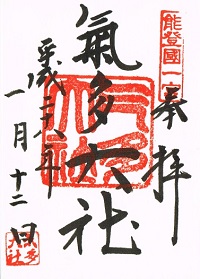 能登國一宮
奉拝
氣多大社
平成二十八年
一月十二日
氣多大社